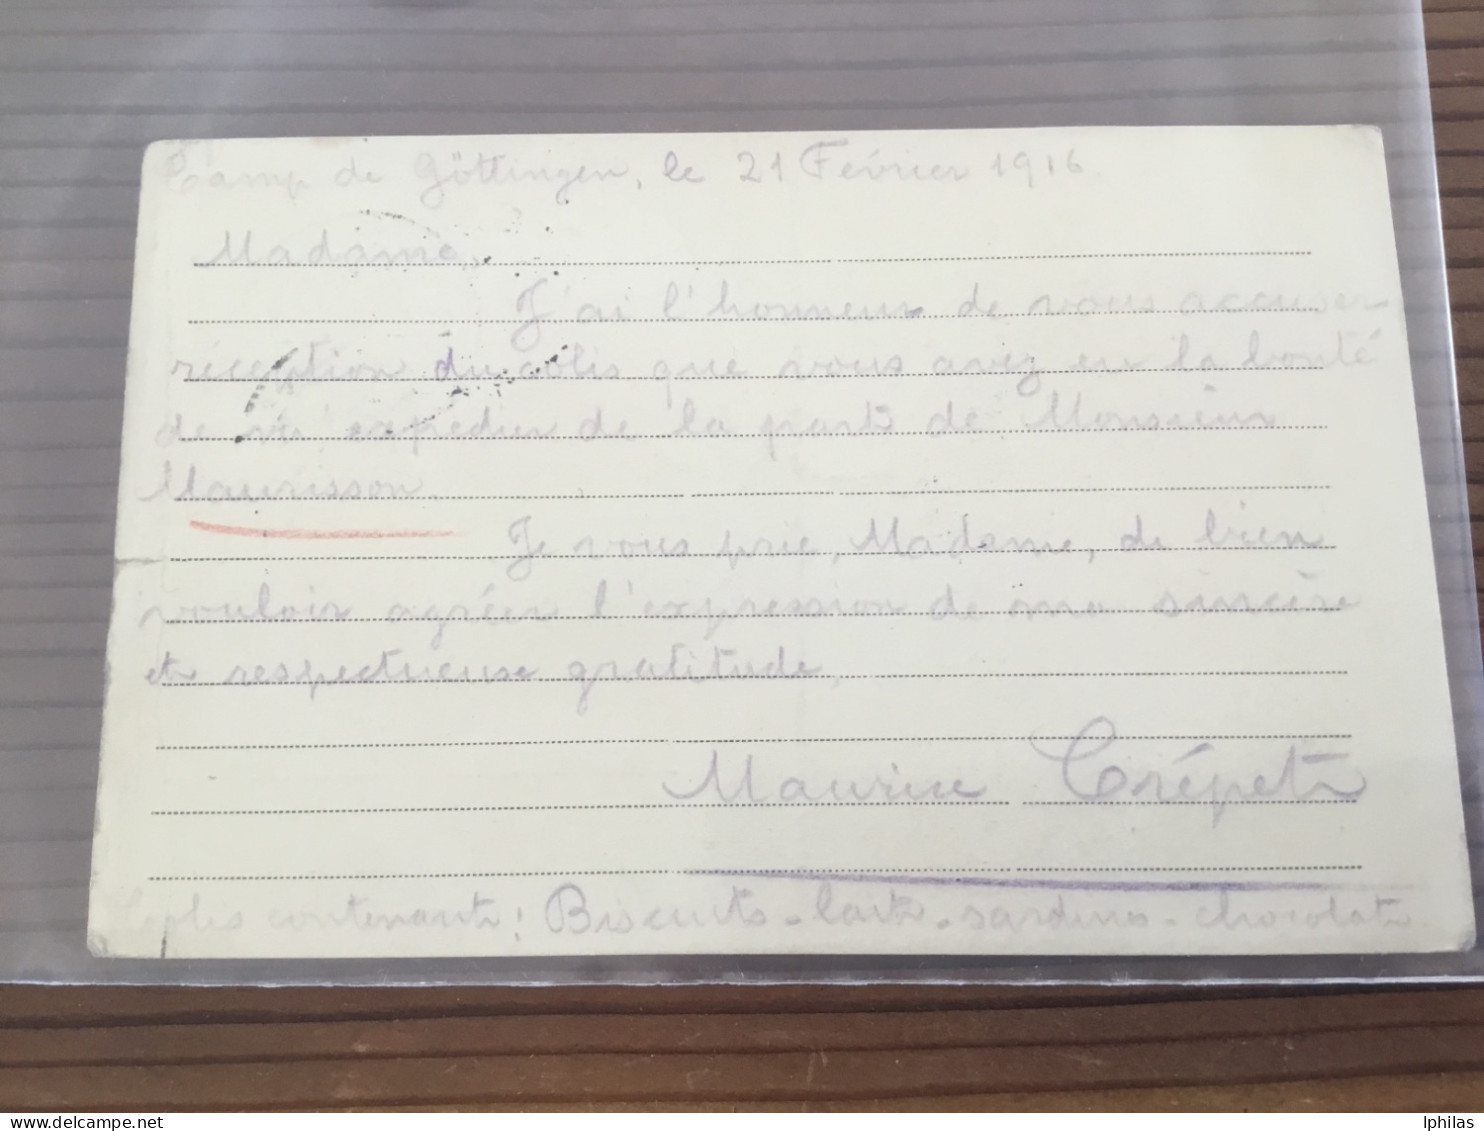 Camp de Göttingen, le 21 Février 1916.
Madame,
J'ai l'honneur de vous accuser
réception du colis que vous avez eu la bonté
de m' expédier de la part de Monsieur
Maurisson.
Je vous prie, Madame, de bien
vouloir agréer l'expression de ma sincère
et respectueuse gratitude,
Maurice Crépet
Colis contenant: Biscuits - lait - sardines - chocolat
lphilas